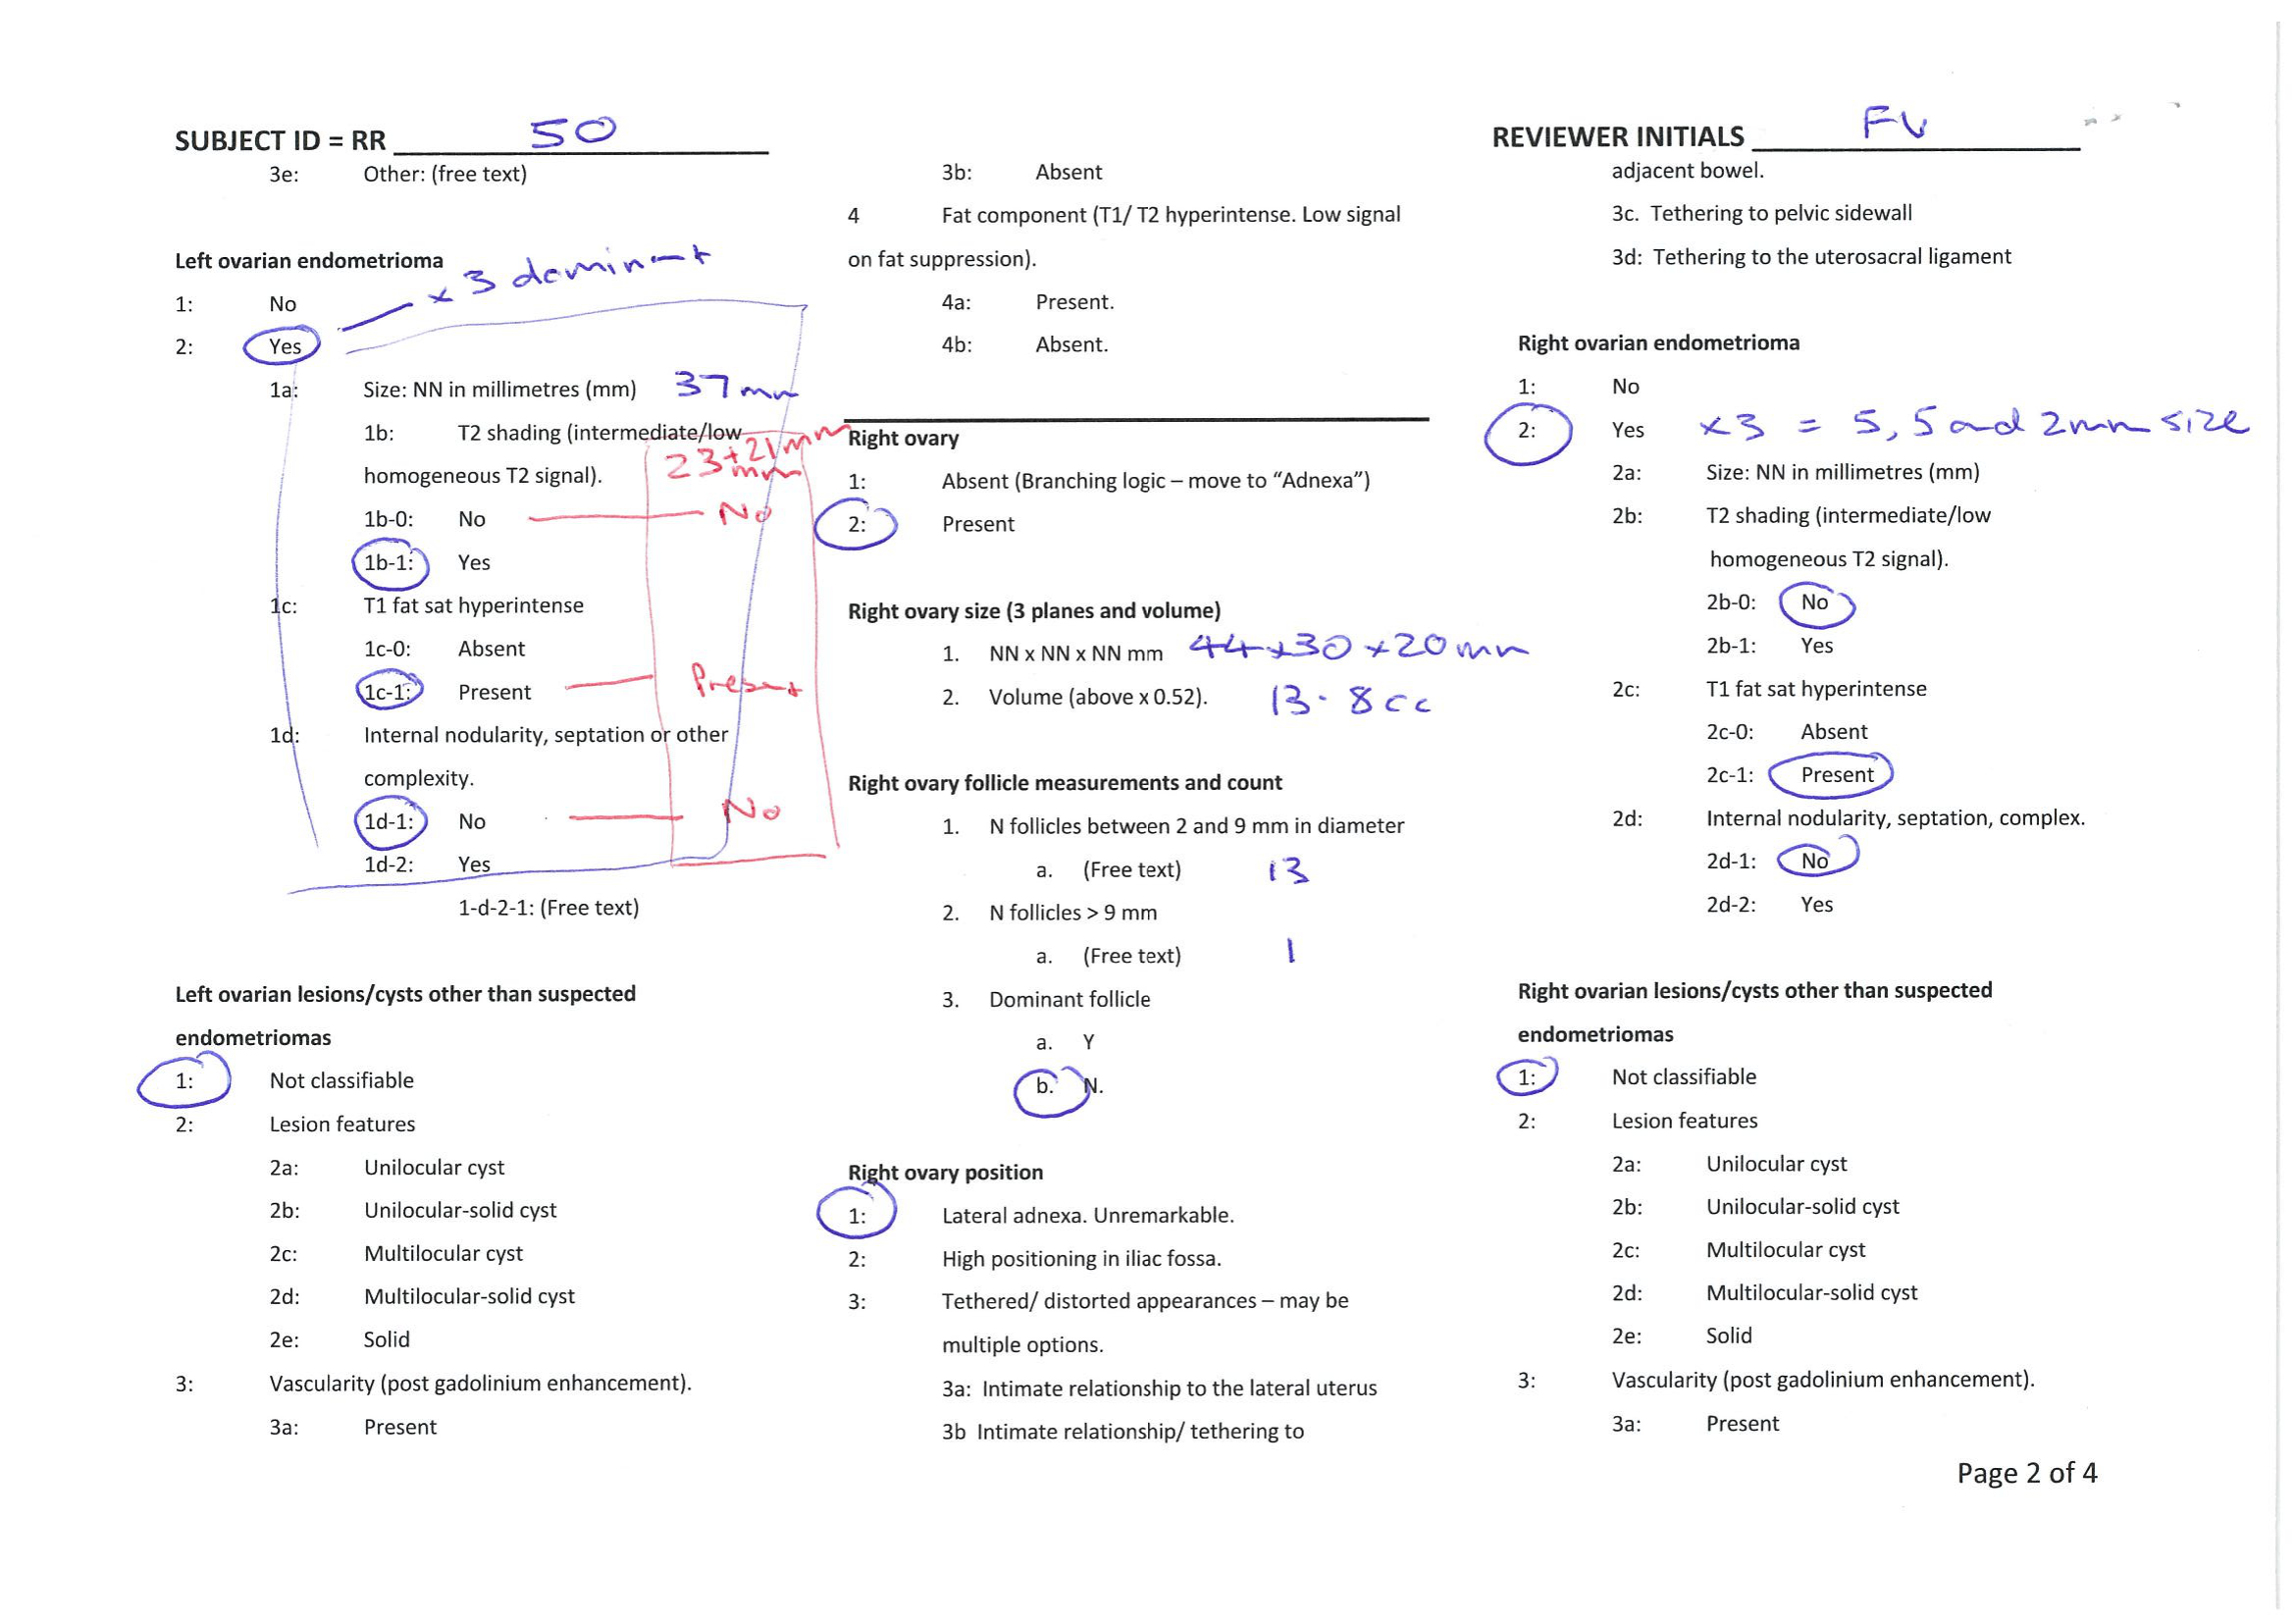 SUBJECT ID = RR 50
3e: Other: (free text)
Left ovarian endometrioma
x 3 dominant
1: No
2: Yes
1a: Size: NN in millimetres (mm) 37mm
1b: T2 shading (intermediate/low
homogeneous T2 signal).
23 mm + 21 mm
1b-0: No No
1b-1: Yes
1c: T1 fat sat hyperintense
1c-0: Absent
1c-1: Present Present
1d: Internal nodularity, septation or other
complexity.
1d-1: No No
1d-2: Yes
1-d-2-1: (Free text)
Left ovarian lesions/cysts other than suspected
endometriomas
1: Not classifiable
2: Lesion features
2a: Unilocular cyst
2b: Unilocular-solid cyst
2c: Multilocular cyst
2d: Multilocular-solid cyst
2e: Solid
3: Vascularity (post gadolinium enhancement).
3a: Present
3b: Absent
4 Fat component (T1/ T2 hyperintense. Low signal
on fat suppression).
4a: Present.
4b: Absent.
Right ovary
1: Absent (Branching logic – move to “Adnexa”)
2: Present
Right ovary size (3 planes and volume)
1. NN x NN x NN mm 44x30x20mm
2. Volume (above x 0.52). 13.8cc
Right ovary follicle measurements and count
1. N follicles between 2 and 9 mm in diameter
a. (Free text) 13
2. N follicles > 9 mm
a. (Free text) 1
3. Dominant follicle
a. Y
b. N.
Right ovary position
1: Lateral adnexa. Unremarkable.
2: High positioning in iliac fossa.
3: Tethered/ distorted appearances – may be
multiple options.
3a: Intimate relationship to the lateral uterus
3b Intimate relationship/ tethering to
REVIEWER INITIALS FV
adjacent bowel.
3c. Tethering to pelvic sidewall
3d: Tethering to the uterosacral ligament
Right ovarian endometrioma
1: No
2: Yes x3 = 5, 5 and 2mm size
2a: Size: NN in millimetres (mm)
2b: T2 shading (intermediate/low
homogeneous T2 signal).
2b-0: No
2b-1: Yes
2c: T1 fat sat hyperintense
2c-0: Absent
2c-1: Present
2d: Internal nodularity, septation, complex.
2d-1: No
2d-2: Yes
Right ovarian lesions/cysts other than suspected
endometriomas
1: Not classifiable
2: Lesion features
2a: Unilocular cyst
2b: Unilocular-solid cyst
2c: Multilocular cyst
2d: Multilocular-solid cyst
2e: Solid
3: Vascularity (post gadolinium enhancement).
3a: Present
Page 2 of 4